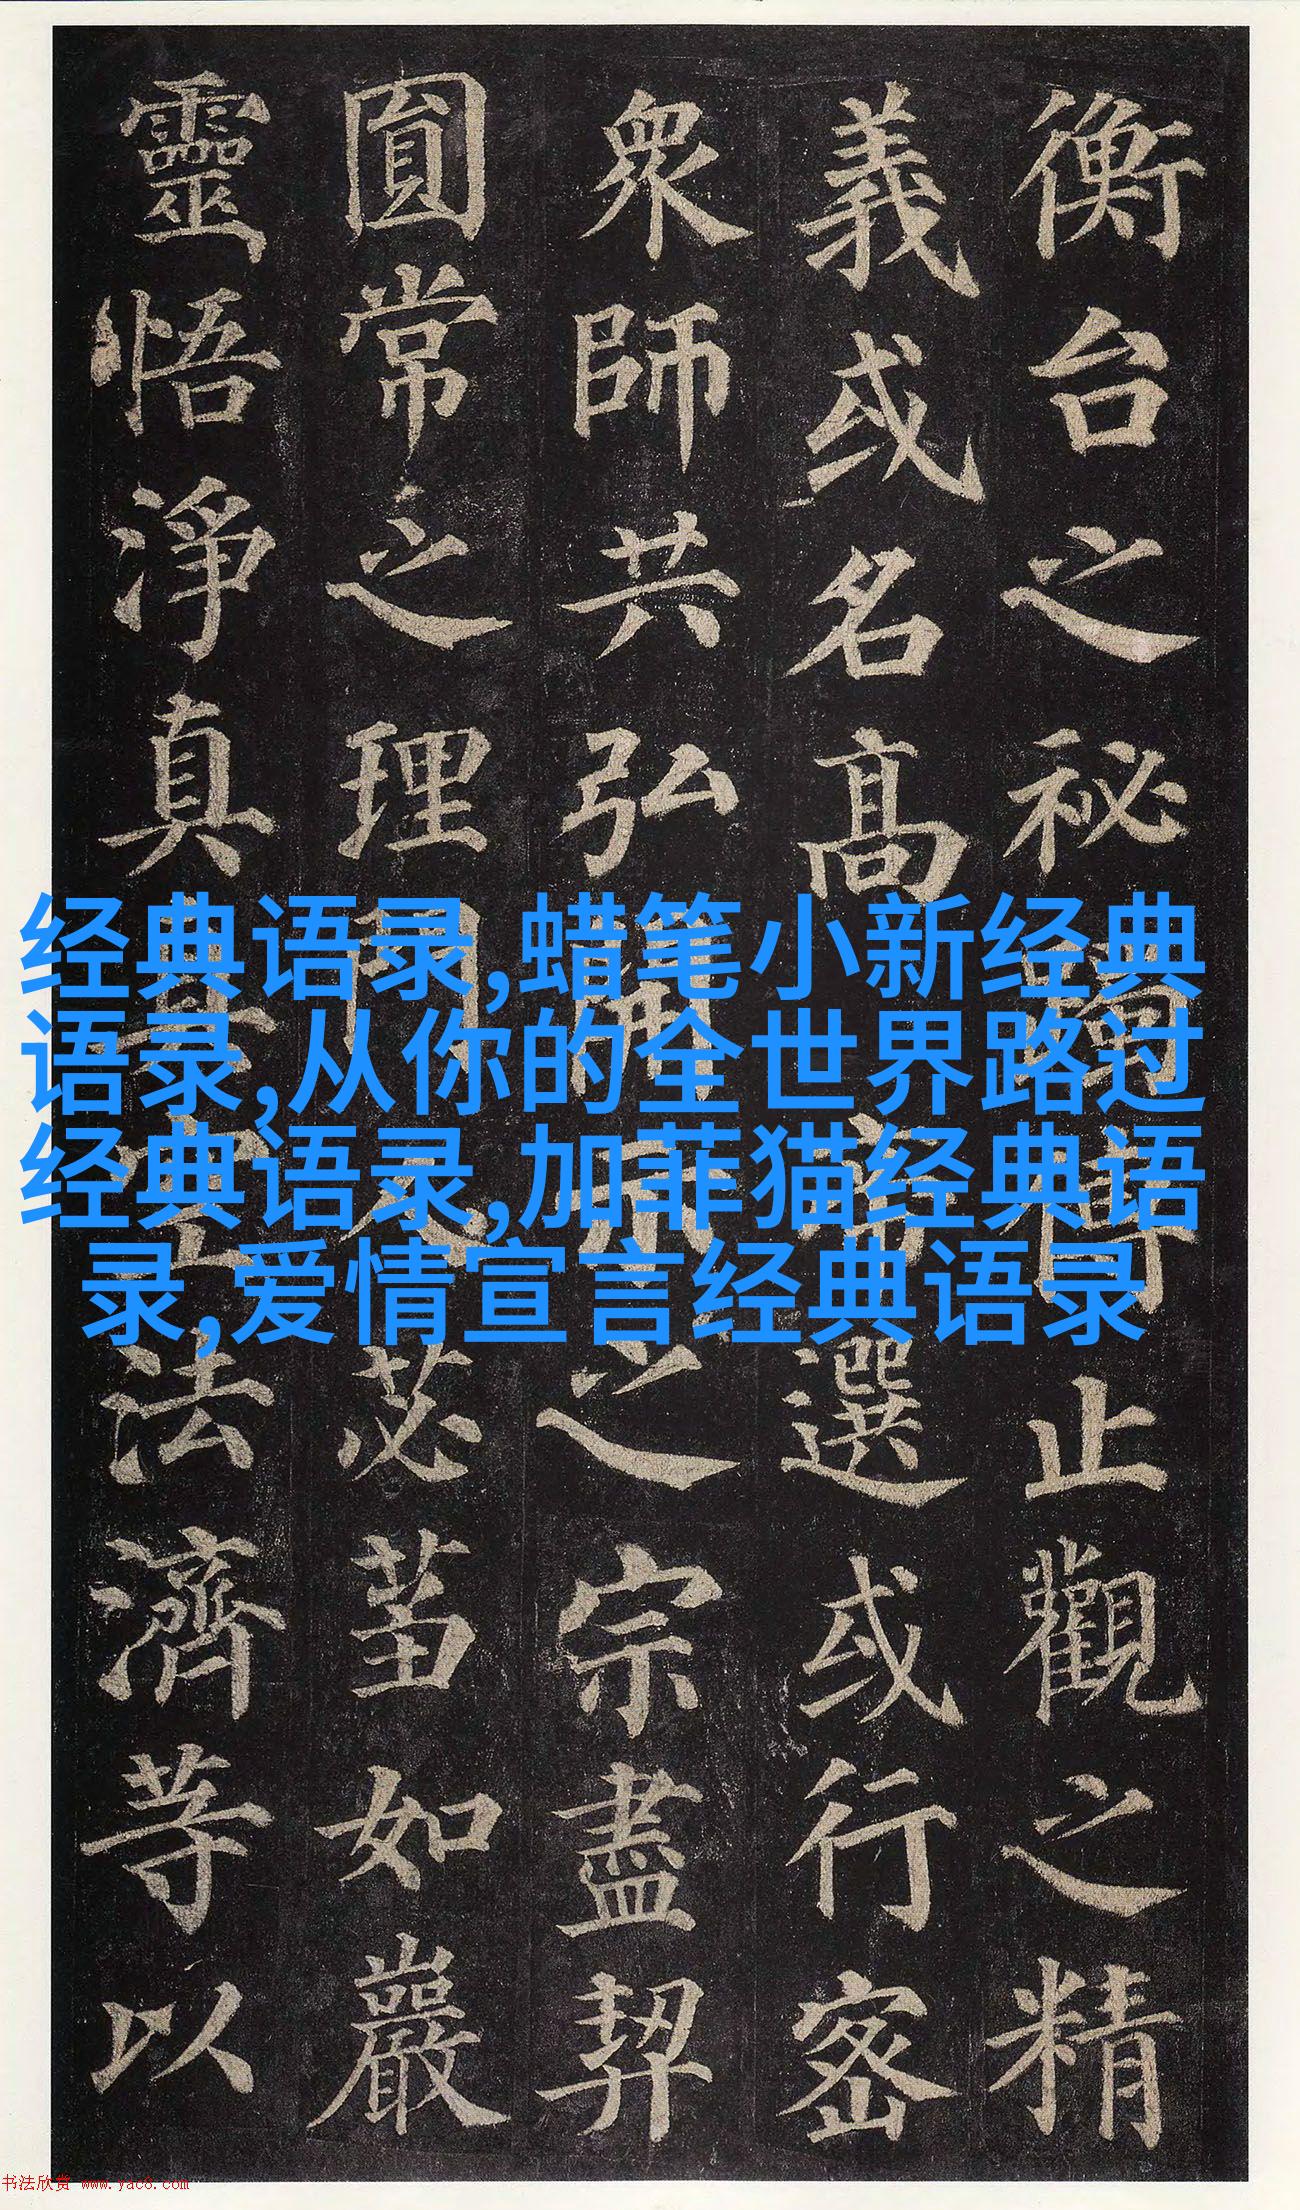 衡台之秘躅傳止觀之精
義或名高帝選或行密
眾師共弘開示之宗盡契
圓常之理門人苾蒭如巖
靈悟淨真真空法濟等以
经典语录,蜡笔小新经典
语录,从你的全世界路过
经典语录,加菲猫经典语
录,爱情宣言经典语录
书法欣赏 www.yac8.com